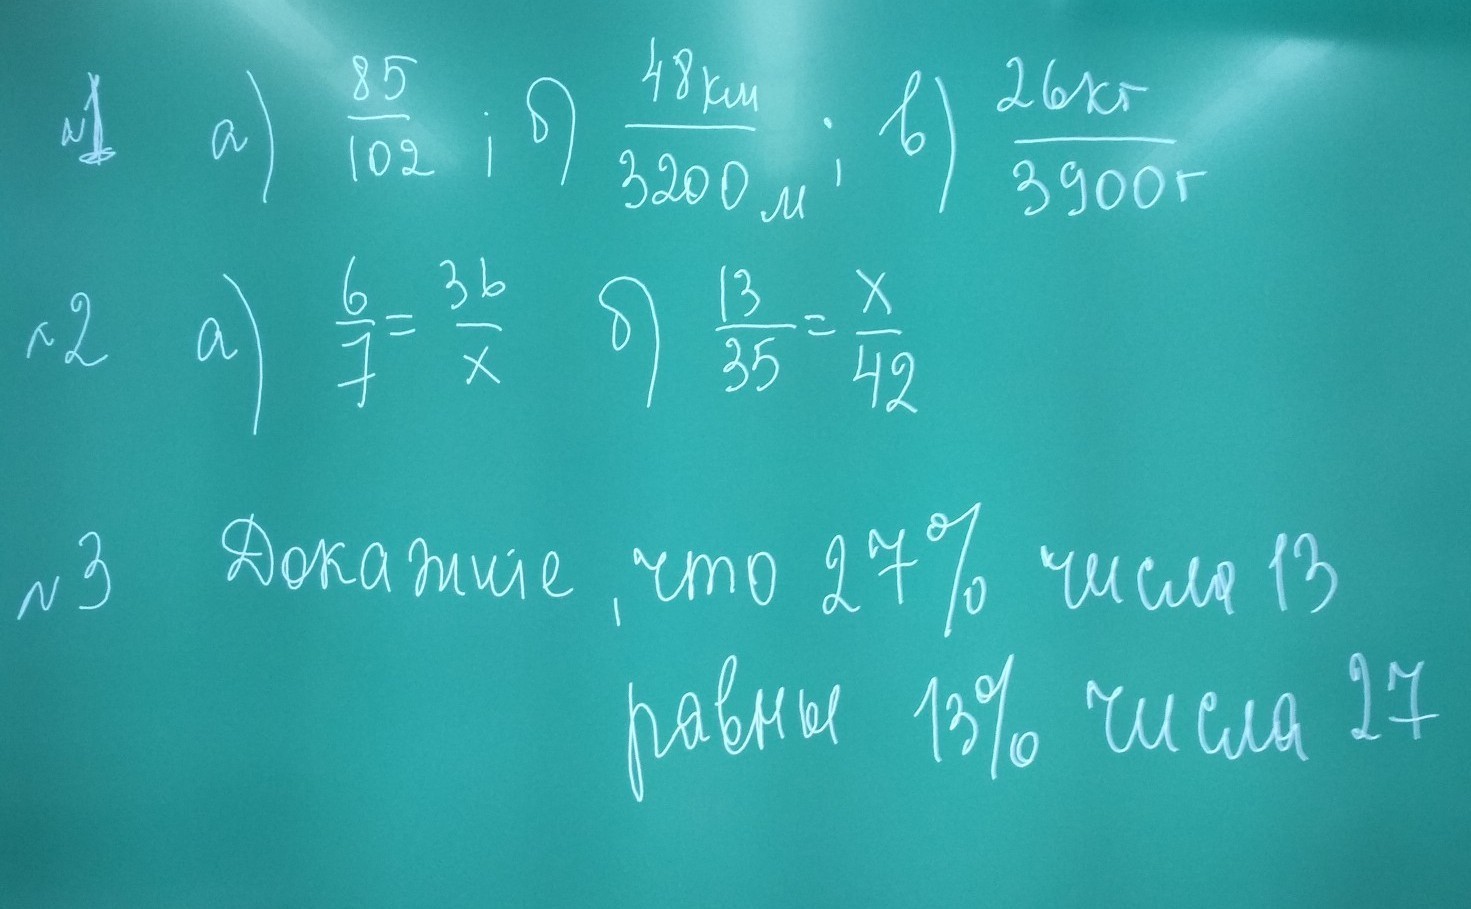 №1 а) 85/102 ; б) 48км/3200м ; в) 26кг/3900г
№2 а) 6/7 = 36/x б) 13/35 = x/42
№3 Докажите, что 27% числа 13
равны 13% числа 27